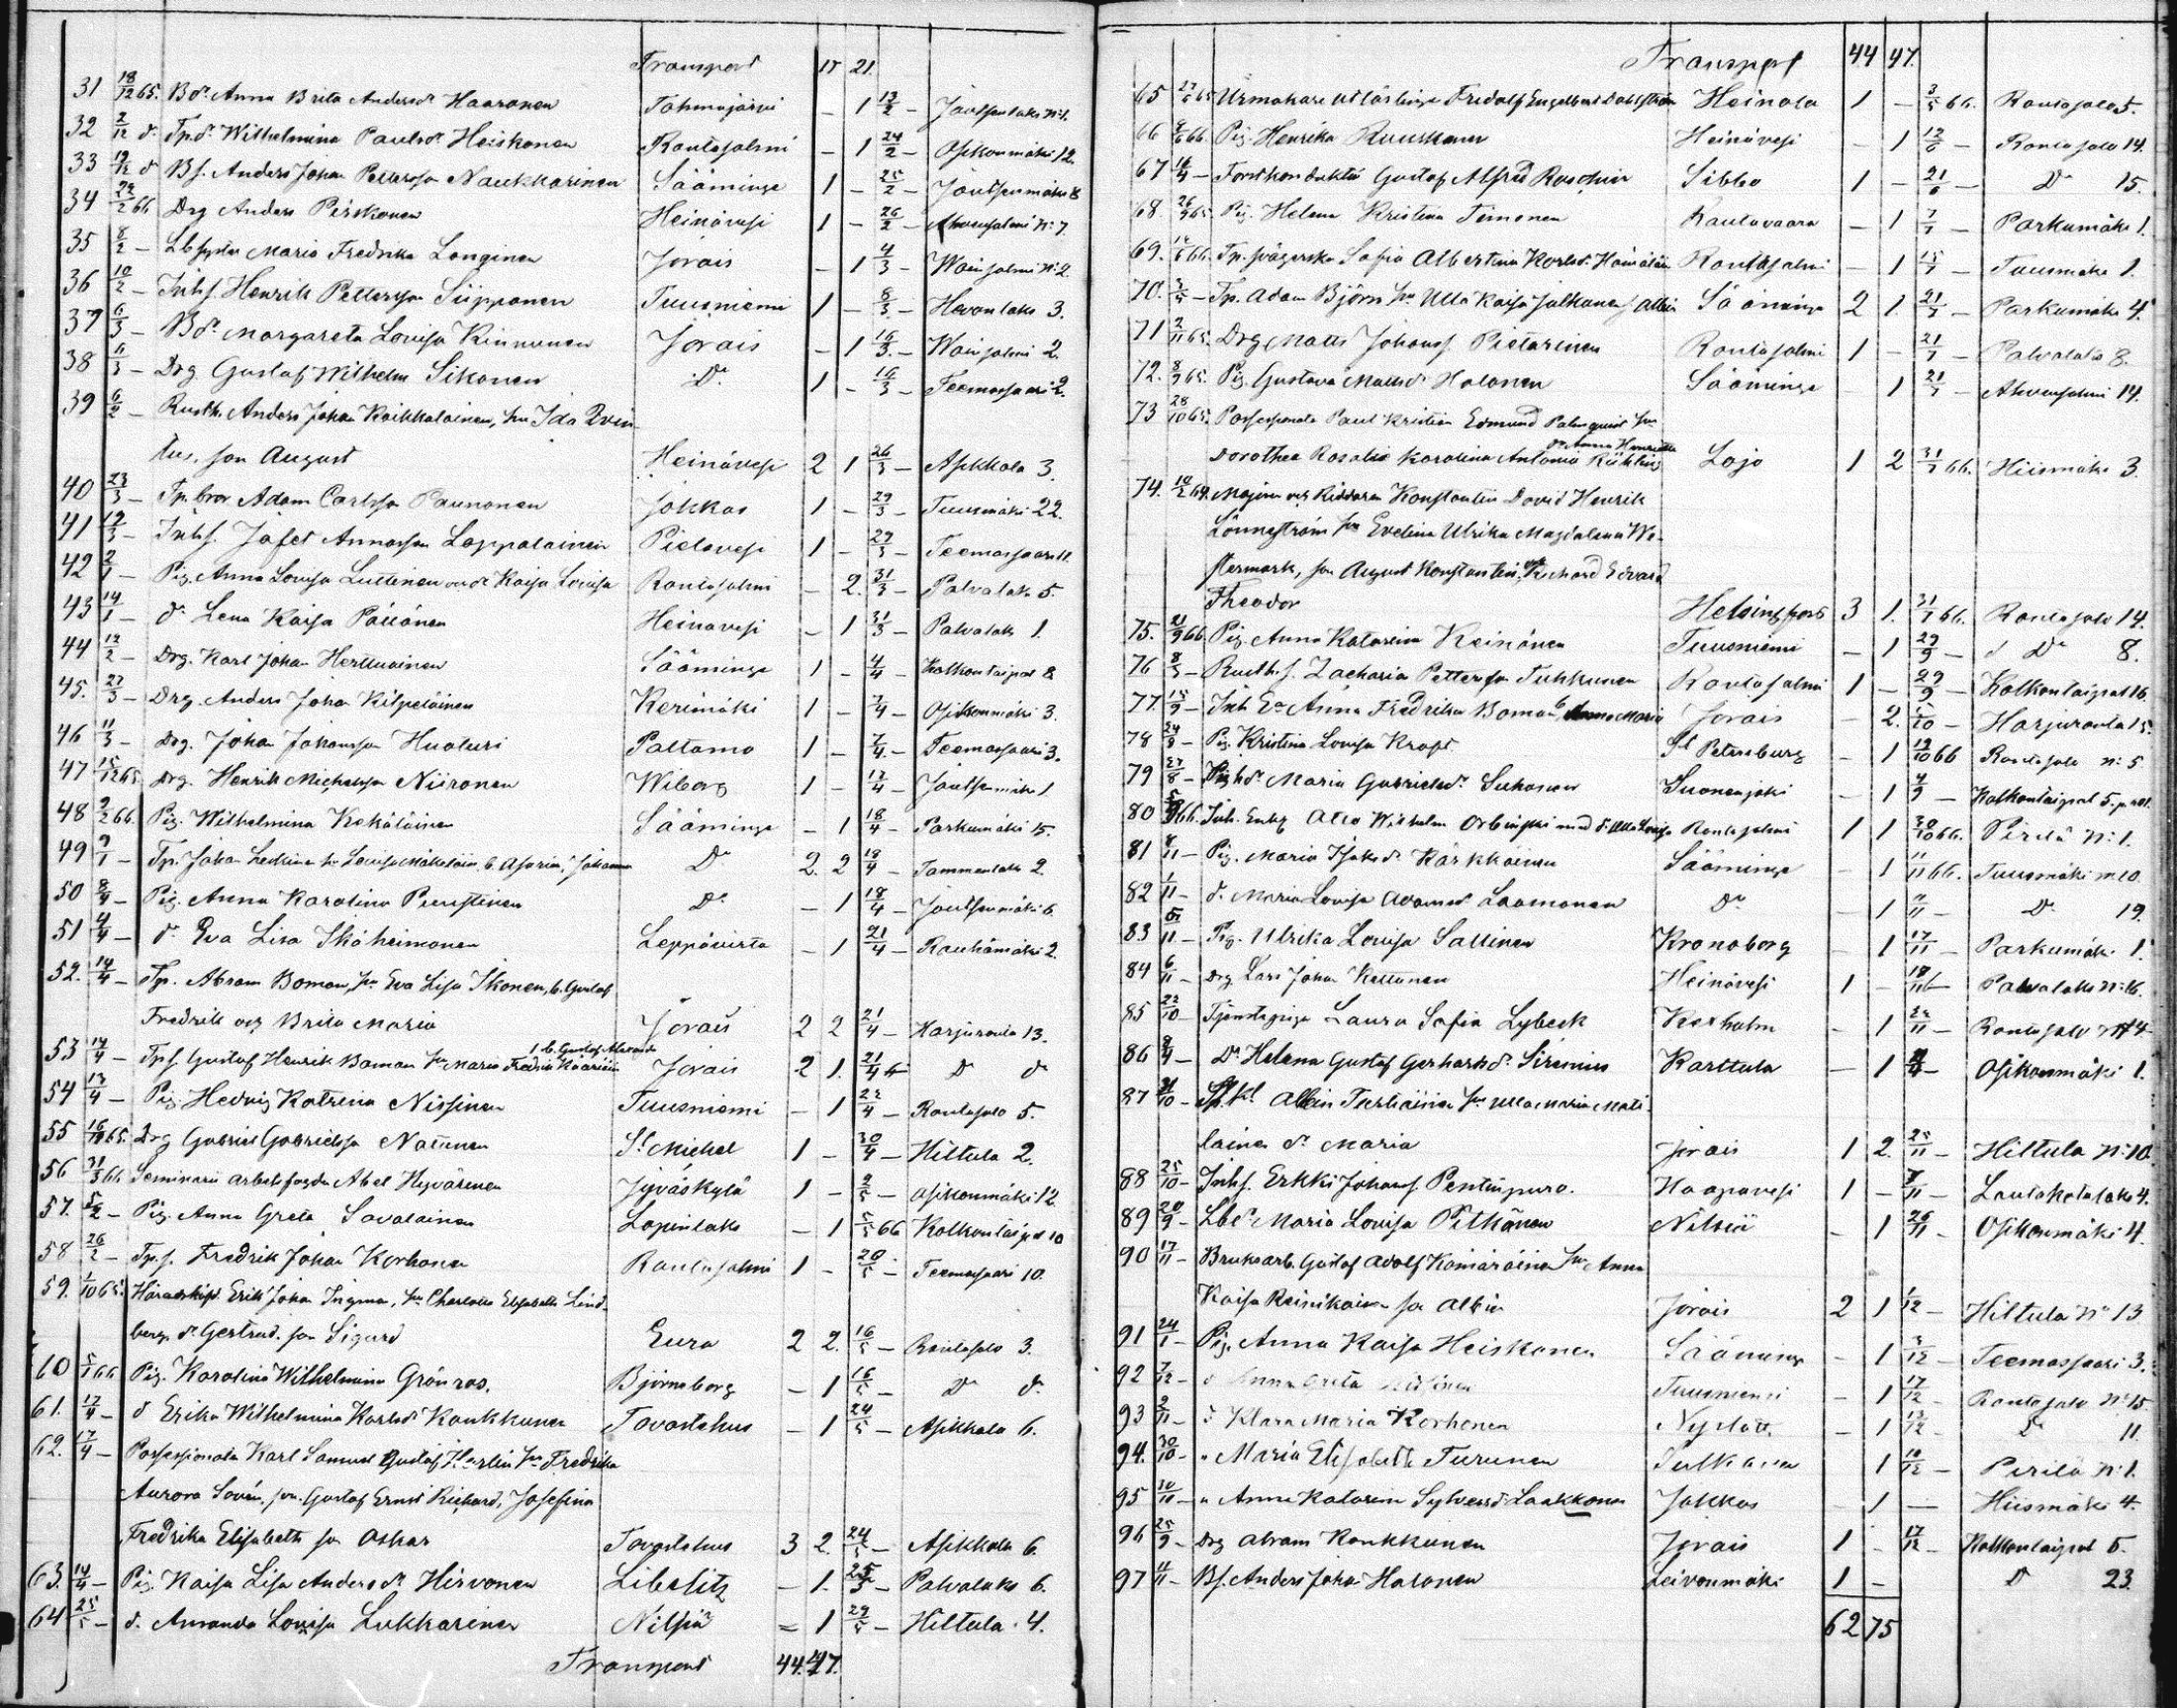 Transport 17 21.
31 18/12 65. Bdr. Anna Brita Andersdr Haaranen Tohmajärvi - 1 13/2 - Joutsenlaks N:1.
32 2/12 dr Tp.dr. Wilhelmina Paulsdr Heiskanen Rantasalmi - 1 24/2 - Osikonmäki 12.
33 19/12 dr Bs. Anders Johan Pettersson Naukkarinen Sääminge 1 - 25/2 - Joutsenmäki 8
34 22/2 66 Drg Anders Pirskanen Heinävesi 1 - 26/2 - Ahvensalmi N:7.
35 8/2 - Maria Fredrika Longinen Jorois - 1 4/3 - Wainsalmi N:2.
36 10/2 - Inhs. Henrik Pettersson Siipponen Tuusniemi 1 - 8/3 - Hevonlaks 3.
37 6/3 - Bdr. Margareta Lovisa Kinnunen Jorois - 1 16/3 - Wainsalmi 2.
38 6/3 - Drg. Gustaf Wilhelm Sikanen Dr 1 - 16/3 - Teemassaari 2.
39 6/2 - Rusth. Anders Johan Kaikkalainen, hu Ida Qvin-
tus, son August Heinävesi 2 1 26/3 - Asikkala 3.
40 23/3 - Tp. bror Adam Carlsson Paunonen Jokkas 1 - 29/3 - Tuusmäki 22.
41 19/3 - Inhs. Jafet Annasson Lappalainen Pielavesi 1 - 29/3 - Teemassaari 11.
42 2/1 - Pig. Anna Lovisa Luttinen o dr Kaisa Lovisa Rantasalmi - 2. 31/3 - Palvalaks 5.
43 14/1 - dr Lena Kaisa Päiänen Heinävesi - 1 31/3 - Palvalaks 1.
44 12/2 - Drg. Karl Johan Herttuainen Sääminge 1 - 4/4 - Kolkontaipal 8.
45. 27/3 - Drg. Anders Johan Kilpeläinen Kerimäki 1 - 7/4 - Osikonmäki 3.
46 11/3 - Drg. Johan Johansson Huoturi Paltamo 1 - 7/4 - Teemassaari 3.
47 15/12 65 Drg. Henrik Michelsson Niironen Wiborg 1 - 17/4 - Joutsenmäki 1.
48 9/2 66. Pig. Wilhelmina Kekäläinen Sääminge - 1 18/4 - Parkumäki 15.
49 9/1 - Tp. Johan Leskinen hu Lovisa Mäkeläin, b. Asarias, Johanna Dr 2. 2 18/4 - Tammenlaks 2.
50 8/4 - Pig. Anna Karolina Puustinen Dr - 1 18/4 - Joutsenmäki 6.
51 4/4 - dr Eva Lisa Ikäheimonen Leppävirta - 1 21/4 - Rauhamäki 2.
52. 14/4 - Tp. Abram Boman, hu Eva Lisa Ikonen, b. Gustaf
Fredrik och Brita Maria Jorois 2 2 21/4 - Harjuranta 13.
53 14/4 - Tps. Gustaf Henrik Boman hu Maria Fredrika Kääriäin b. Gustaf Alexander Jorois 2 1. 21/4 - Dr dr
54 13/4 - Pig. Hedvig Katrina Nissinen Tuusniemi - 1 22/4 - Rantasalo 5.
55 16/12 65. Drg Gabriel Gabrielsson Natunen St Michel 1 - 30/4 - Hiltula 2.
56 31/3 66 Seminarii arbetsfogden Abel Hyvärinen Jyväskylä 1 - 2/5 - Osikonmäki 12.
57. 5/2 - Pig. Anna Greta Savolainen Lapinlaks - 1 5/5 66 Kolkontaipal 10
58 26/2 - Tp.s. Fredrik Johan Korhonen Rantasalmi 1 - 20/5 - Teemassaari 10.
59. 1/10 65. Häradshöfd. Erik Johan Ingman, hu Charlotta Elisabeth Lind-
berg, dr Gertrud. son Sigurd Eura 2 2. 16/5 - Rantasalo 3.
60 5/1 66 Pig. Karolina Wilhelmina Grönroos. Björneborg - 1 16/5 - Dr dr
61. 17/4 - dr Erika Wilhelmina Karlsdr Kankkunen Tavastehus - 1 24/5 - Asikkala 6.
62. 17/4 - Possessionaten Karl Samuel Gustaf Harlin hu Fredrika
Aurora Sovén, son Gustaf Ernst Richard, Josefina
Fredrika Elisabeth son Oskar Tavastehus 3 2. 24/5 - Asikkala 6.
63. 14/4 - Pig. Kaisa Lisa Andersdr Hirvonen Libelitz - 1. 25/5 - Palvalaks 6.
64 25/5 - dr. Amanda Lovisa Lukkarinen Nilsiä - 1 29/5 - Hiltula 4.
Transport 44. 47.
Transport 44 47.
65 27/6 65 Urmakare utlärlinge Fridolf Engelbert Dahlström Heinola 1 - 3/5 66. Rantasalo 5.
66 9/6 66. Pig. Henrika Ruuskanen Heinävesi - 1 12/6 - Rantasalo 14.
67 16/4 - Forstkonduktör Gustaf Alfred Roschier Sibbo 1 - 21/6 - Dr 15.
68. 26/9 65. Pig. Helena Kristina Timonen Rautavaara - 1 7/7 - Parkumäki 1.
69. 12/6 66. Tp. svägerska Sofia Albertina Karlsdr Hämäläin Rantasalmi - 1 15/7 - Tuusmäki 1.
70. 3/5 - Tp. Adam Björn hu Ulla Kaisa Jalkanen s. Albin Sääminge 2 1 21/7 - Parkumäki 4.
71 2/11 65. Drg Matts Johanss. Pietarinen Rantasalmi 1 - 21/7 - Palvalaks 8.
72. 8/9 65. Pig. Gustava Mattsdr Halonen Sääminge - 1 21/7 - Ahvensalmi 14.
73 28/10 65. Possessionaten Paul Kristian Edmund Palmquist hu
Dorothea Rosalie Karolina Antonia Rühling dr Anna Henriette Lojo 1 2 31/7 66. Hiismäki 3.
74. 10/2 69. Majoren och Riddaren Konstantin David Henrik
Lönnström hu Evelina Ulrika Magdalena We-
stermark, son August Konstantin, och Richard Edvard
Theodor Helsingfors 3 1. 31/7 66. Rantasalo 14.
75. 21/9 66 Pig. Anna Katarina Keinänen Tuusniemi - 1 29/9 - Dr 8.
76 8/5 - Rusth.s. Zacharias Pettersson Tuhkunen Rantasalmi 1 - 29/9 - Kolkontaipal 16.
77. 15/9 - Inh. Ea Anna Fredrika Boman, b. Anna Maria Jorois - 2. 5/10 - Harjuranta 15.
78 24/9 - Pig. Kristina Lovisa Kraft St Petersburg - 1 19/10 66 Rantasalo N:5.
79 27/8 - dr Maria Gabrielsdr Suhonen Suonenjoki - 1 4/9 - Kolkontaipal 5.
80 5/9 66. Inh. Enkl Otto Wilhelm Orbinski med dr Ulla Lovisa Rantasalmi 1 1 30/10 66. Pirilä N:1.
81 8/11 - Pig. Maria Isaksdr Kärkkäinen Sääminge - 1 11/11 66. Tuusmäki 10.
82 1/11 - dr Maria Lovisa Adamsdr Laamanen Dr - 1 11/11 - Dr 19.
83 6/11 - Pig. Ulrika Lovisa Sallinen Kronoborg - 1 17/11 - Parkumäki 1.
84 6/11 - Drg Lars Johan Kettunen Heinävesi 1 - 18/11 - Palvalaks N:16.
85 22/10 - Tjenstepiga Laura Sofia Lybeck Kexholm - 1 22/11 - Rantasalo N:4
86 8/4 - Dr Helena Gustaf Gerhardsdr Sirenius Karttula - 1 - Osikonmäki 1.
87 /10 - Albin Turtiainen hu Ulla Maria Mati-
lainen dr Maria Jorois 1 2. 25/11 - Hiltula N:10
88 25/10 - Inhs. Erkki Johanss. Penttinpuro. Haapavesi 1 - /11 - Lautakatalaks 4.
89 20/9 - Lbdr Maria Lovisa Pitkänen Nilsiä - 1 26/11 - Osikonmäki 4.
90 17/11 - Bruksarb. Gustaf Adolf Kämäräinen hu Anna
Kaisa Reinikainen son Albin Jorois 2 1 1/12 - Hiltula No 13
91 24/1 - Pig. Anna Kaisa Heiskanen Sääminge - 1 3/12 - Teemassaari 3.
92 7/12 - dr Anna Greta Tuusniemi - 1 17/12 - Rantasalo No 15.
93 9/11 - dr Klara Maria Korhonen Nyslott - 1 17/12 - Dr 11.
94. 30/10 - " Maria Elisabeth Turunen Sulkava 1 10/12 - Pirilä N:1.
95 30/10 - " Anna Katarina Sylvesd: Laakkonen Jokkas - 1 — Hiismäki 4.
96 25/9 - Drg Abram Kankkunen Jorois 1 - 17/12 - Kolkontaipal 5.
97 11/11 - Bs. Anders Johan Halonen Leivonmäki 1 - Dr 23.
62 75